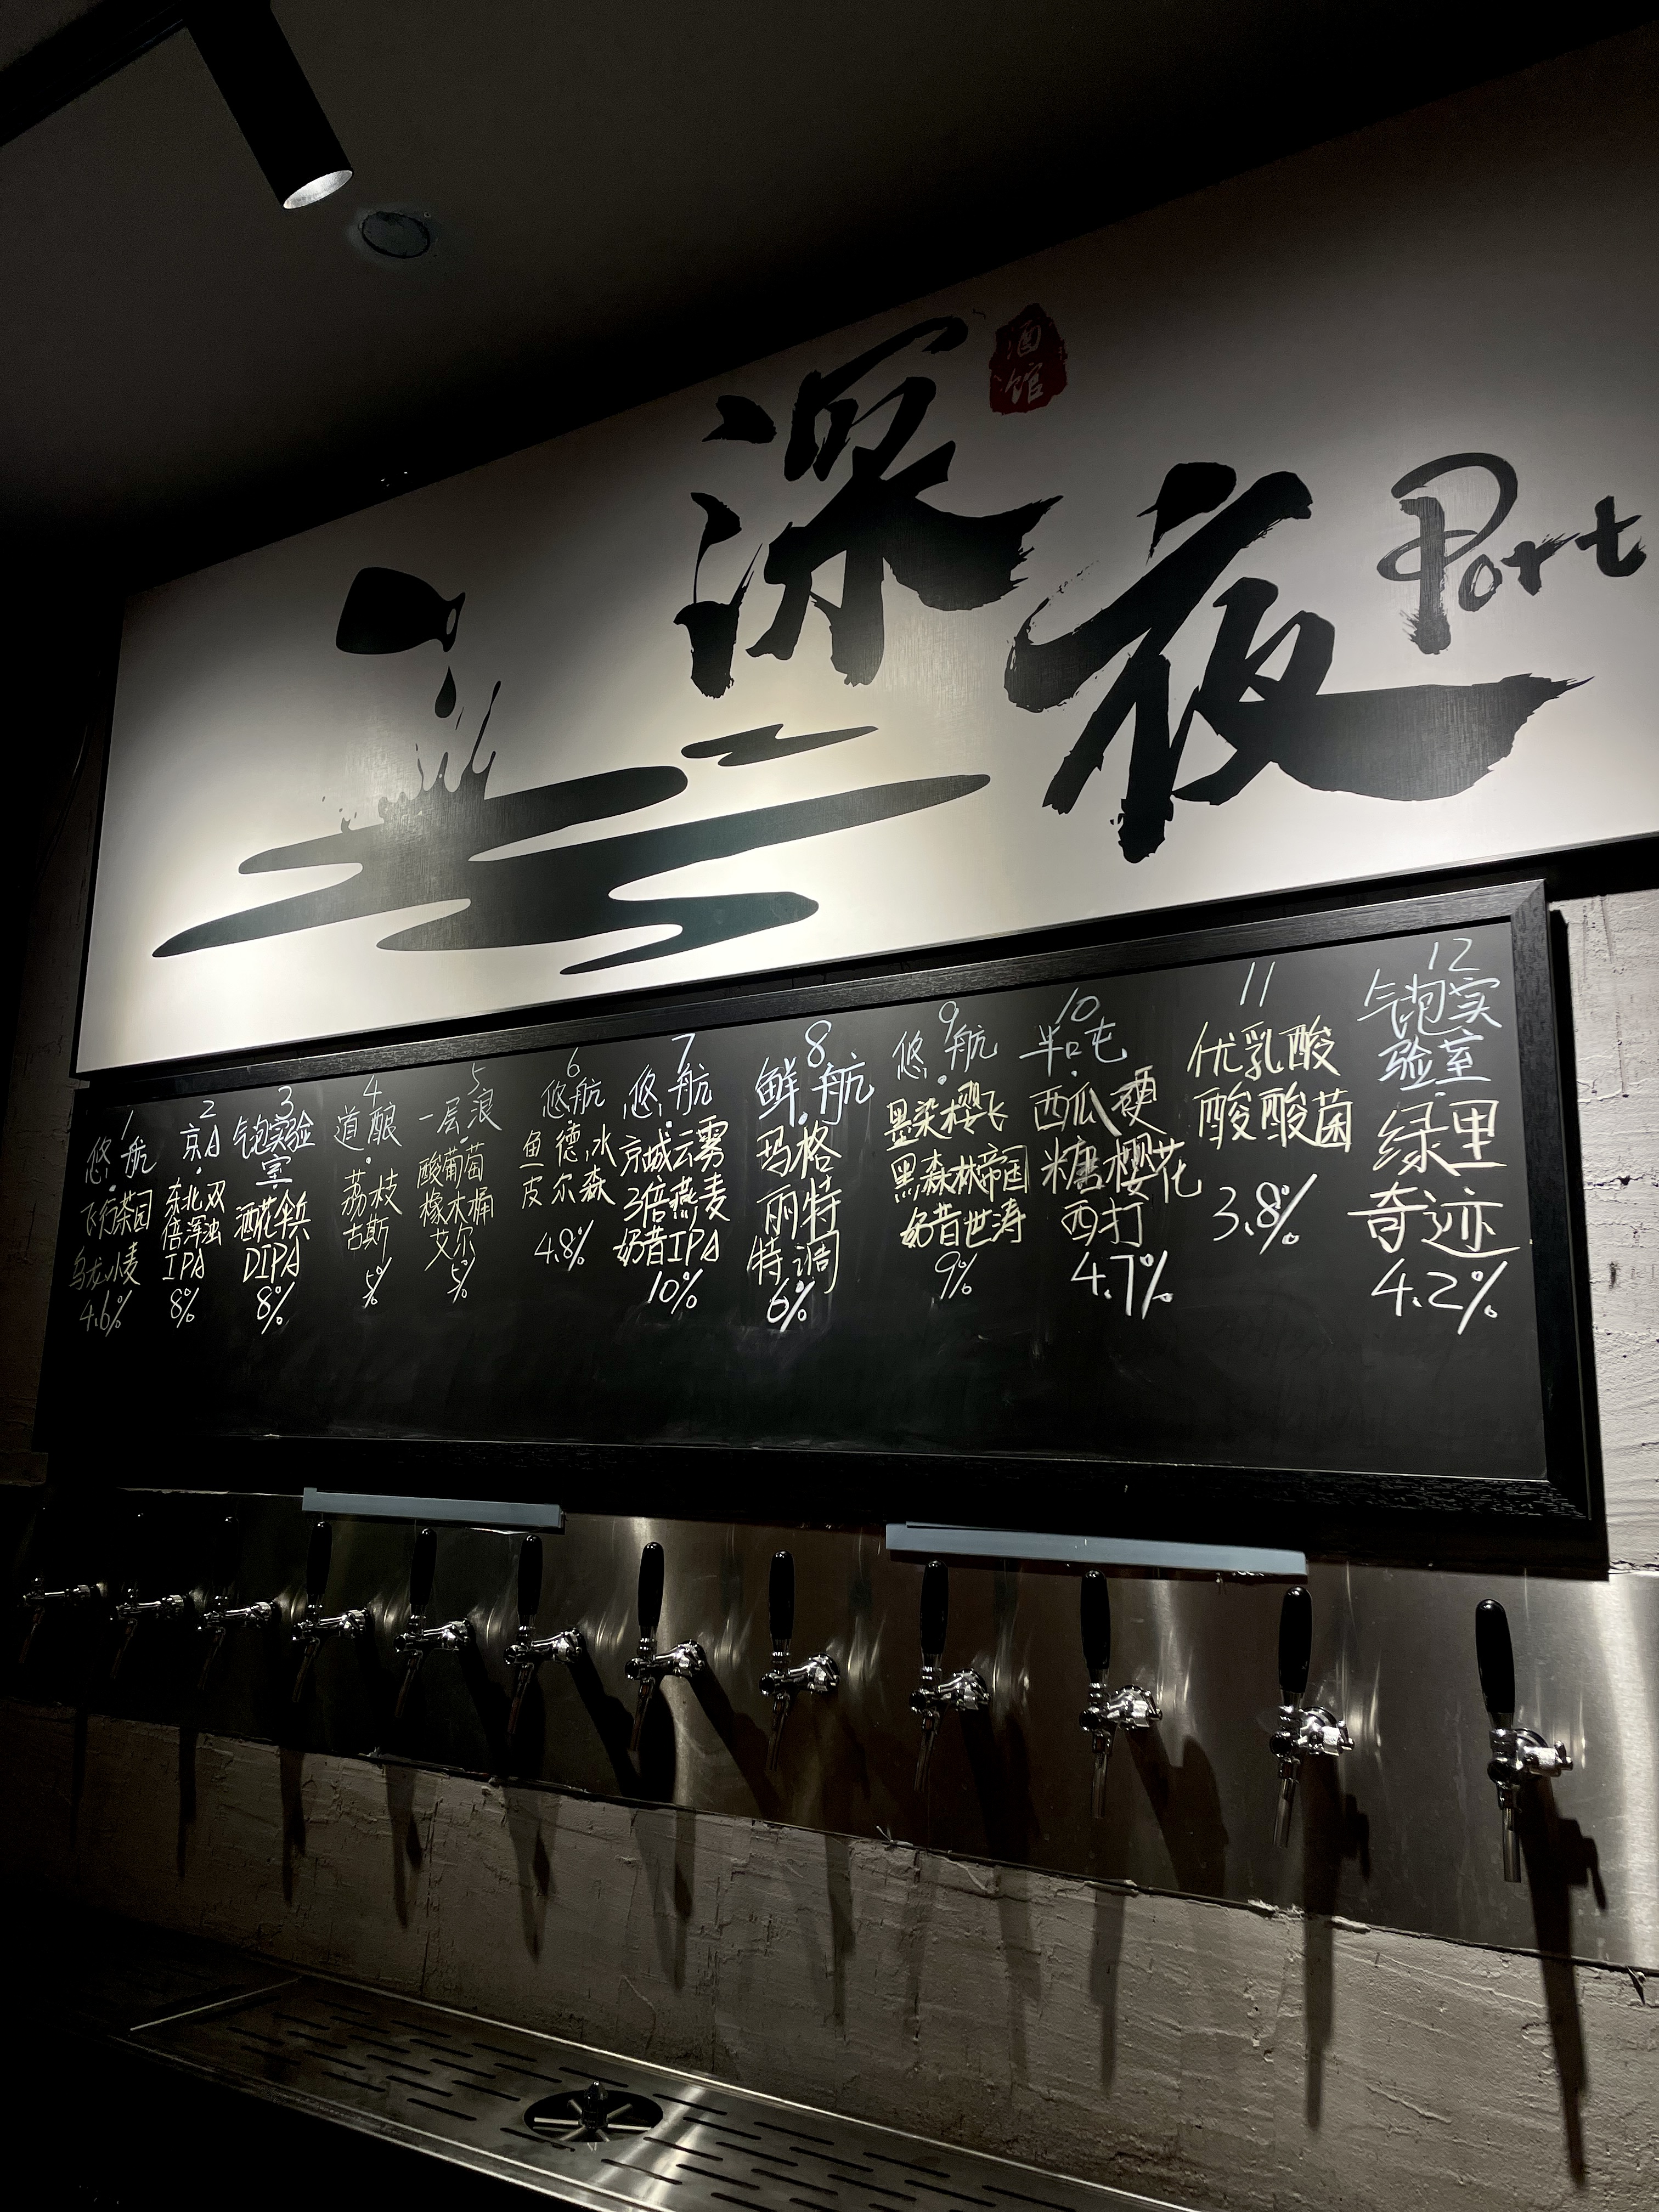 酒
馆
深
夜
Port
1
悠·航
飞行茶园
乌龙小麦
4.6%
2
京A
·
东北双
倍浑浊
IPA
8%
3
气泡实验
室
酒花军兵
DIPA
8%
4
道酿
·
荔枝
古斯
5%
5
一层浪
·
酸葡萄
橡木桶
艾尔
5%
6
悠航
鱼德水
皮尔森
4.8%
7
悠·航
京城云雾
3倍燕麦
奶昔IPA
10%
8
鲜·航
玛格
丽特
特调
6%
9
悠·航
墨染樱飞
黑森林帝国
奶昔世涛
9%
10
半口屯
西瓜硬
糖樱花
西打
4.7%
11
优乳酸
酸酸菌
3.8%
12
气泡实
验室
·
绿里
奇迹
4.2%